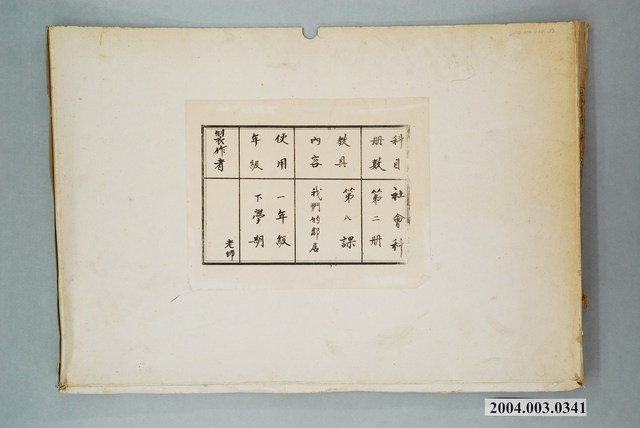 科目 社會科
册數 第二册
教具 第八課
內容 我們的鄰居
使用 一年級
年級 下學期
製作者 老師
2004.003.0341